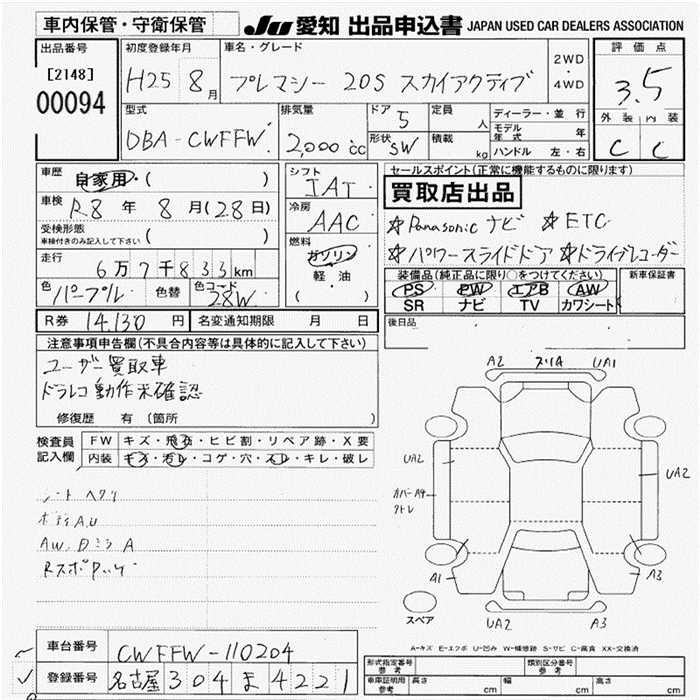 車内保管・守衛保管
JU 愛知 出品申込書 JAPAN USED CAR DEALERS ASSOCIATION
出品番号
[2148]
00094
初度登録年月
H25 8月
車名・グレード
プレマシー 20S スカイアクティブ
2WD
・
4WD
評価点
3.5
外装 内装
C C
型式
DBA-CWFFW
排気量
2,000cc
ドア
5
形状
SW
定員
人
積載
kg
ディーラー・並行
モデル年式 年
ハンドル 左・右
車歴
自家用・( )
車検
R8年 8月(28日)
受検形態
車検付きのみ記入して下さい ( )
走行
6万7千833km
色
パープル
色替
色コード
28W
シフト
IAT
冷房
AAC
燃料
ガソリン
軽・油
( )
セールスポイント(正常に機能するものに限ります)
買取店出品
☆Panasonicナビ ☆ETC
☆パワースライドドア ☆ドライブレコーダー
装備品(純正品に限り○をつけてください)
PS PW エアB AW
SR ナビ TV カワシート
新車保証書
後日品
R券 14,130円
名変通知期限 月 日
注意事項申告欄(不具合内容等は具体的に記入して下さい)
ユーザー買取車
ドラレコ動作未確認
修復歴 有 (箇所 )
検査員記入欄
FW キズ・飛石・ヒビ割・リペア跡・X要
内装 キズ・汚レ・コゲ・穴・スレ・キレ・破レ
シートヘタリ
ボディA,U
AW、DミラA
A2 スリA UA1
UA2
UA2
カバーAサ
クトレ
A1
A3
スペア
UA2 A3
A-キズ E-エクボ U-凹み W-補修跡 S-サビ C-腐食 XX-交換済
車台番号
CWFFW-110204
登録番号
名古屋 304 ま 4221
形式指定番号
参考
類別区分番号
参考
車庫証明用
参考
長さ cm
幅 cm
高さ cm